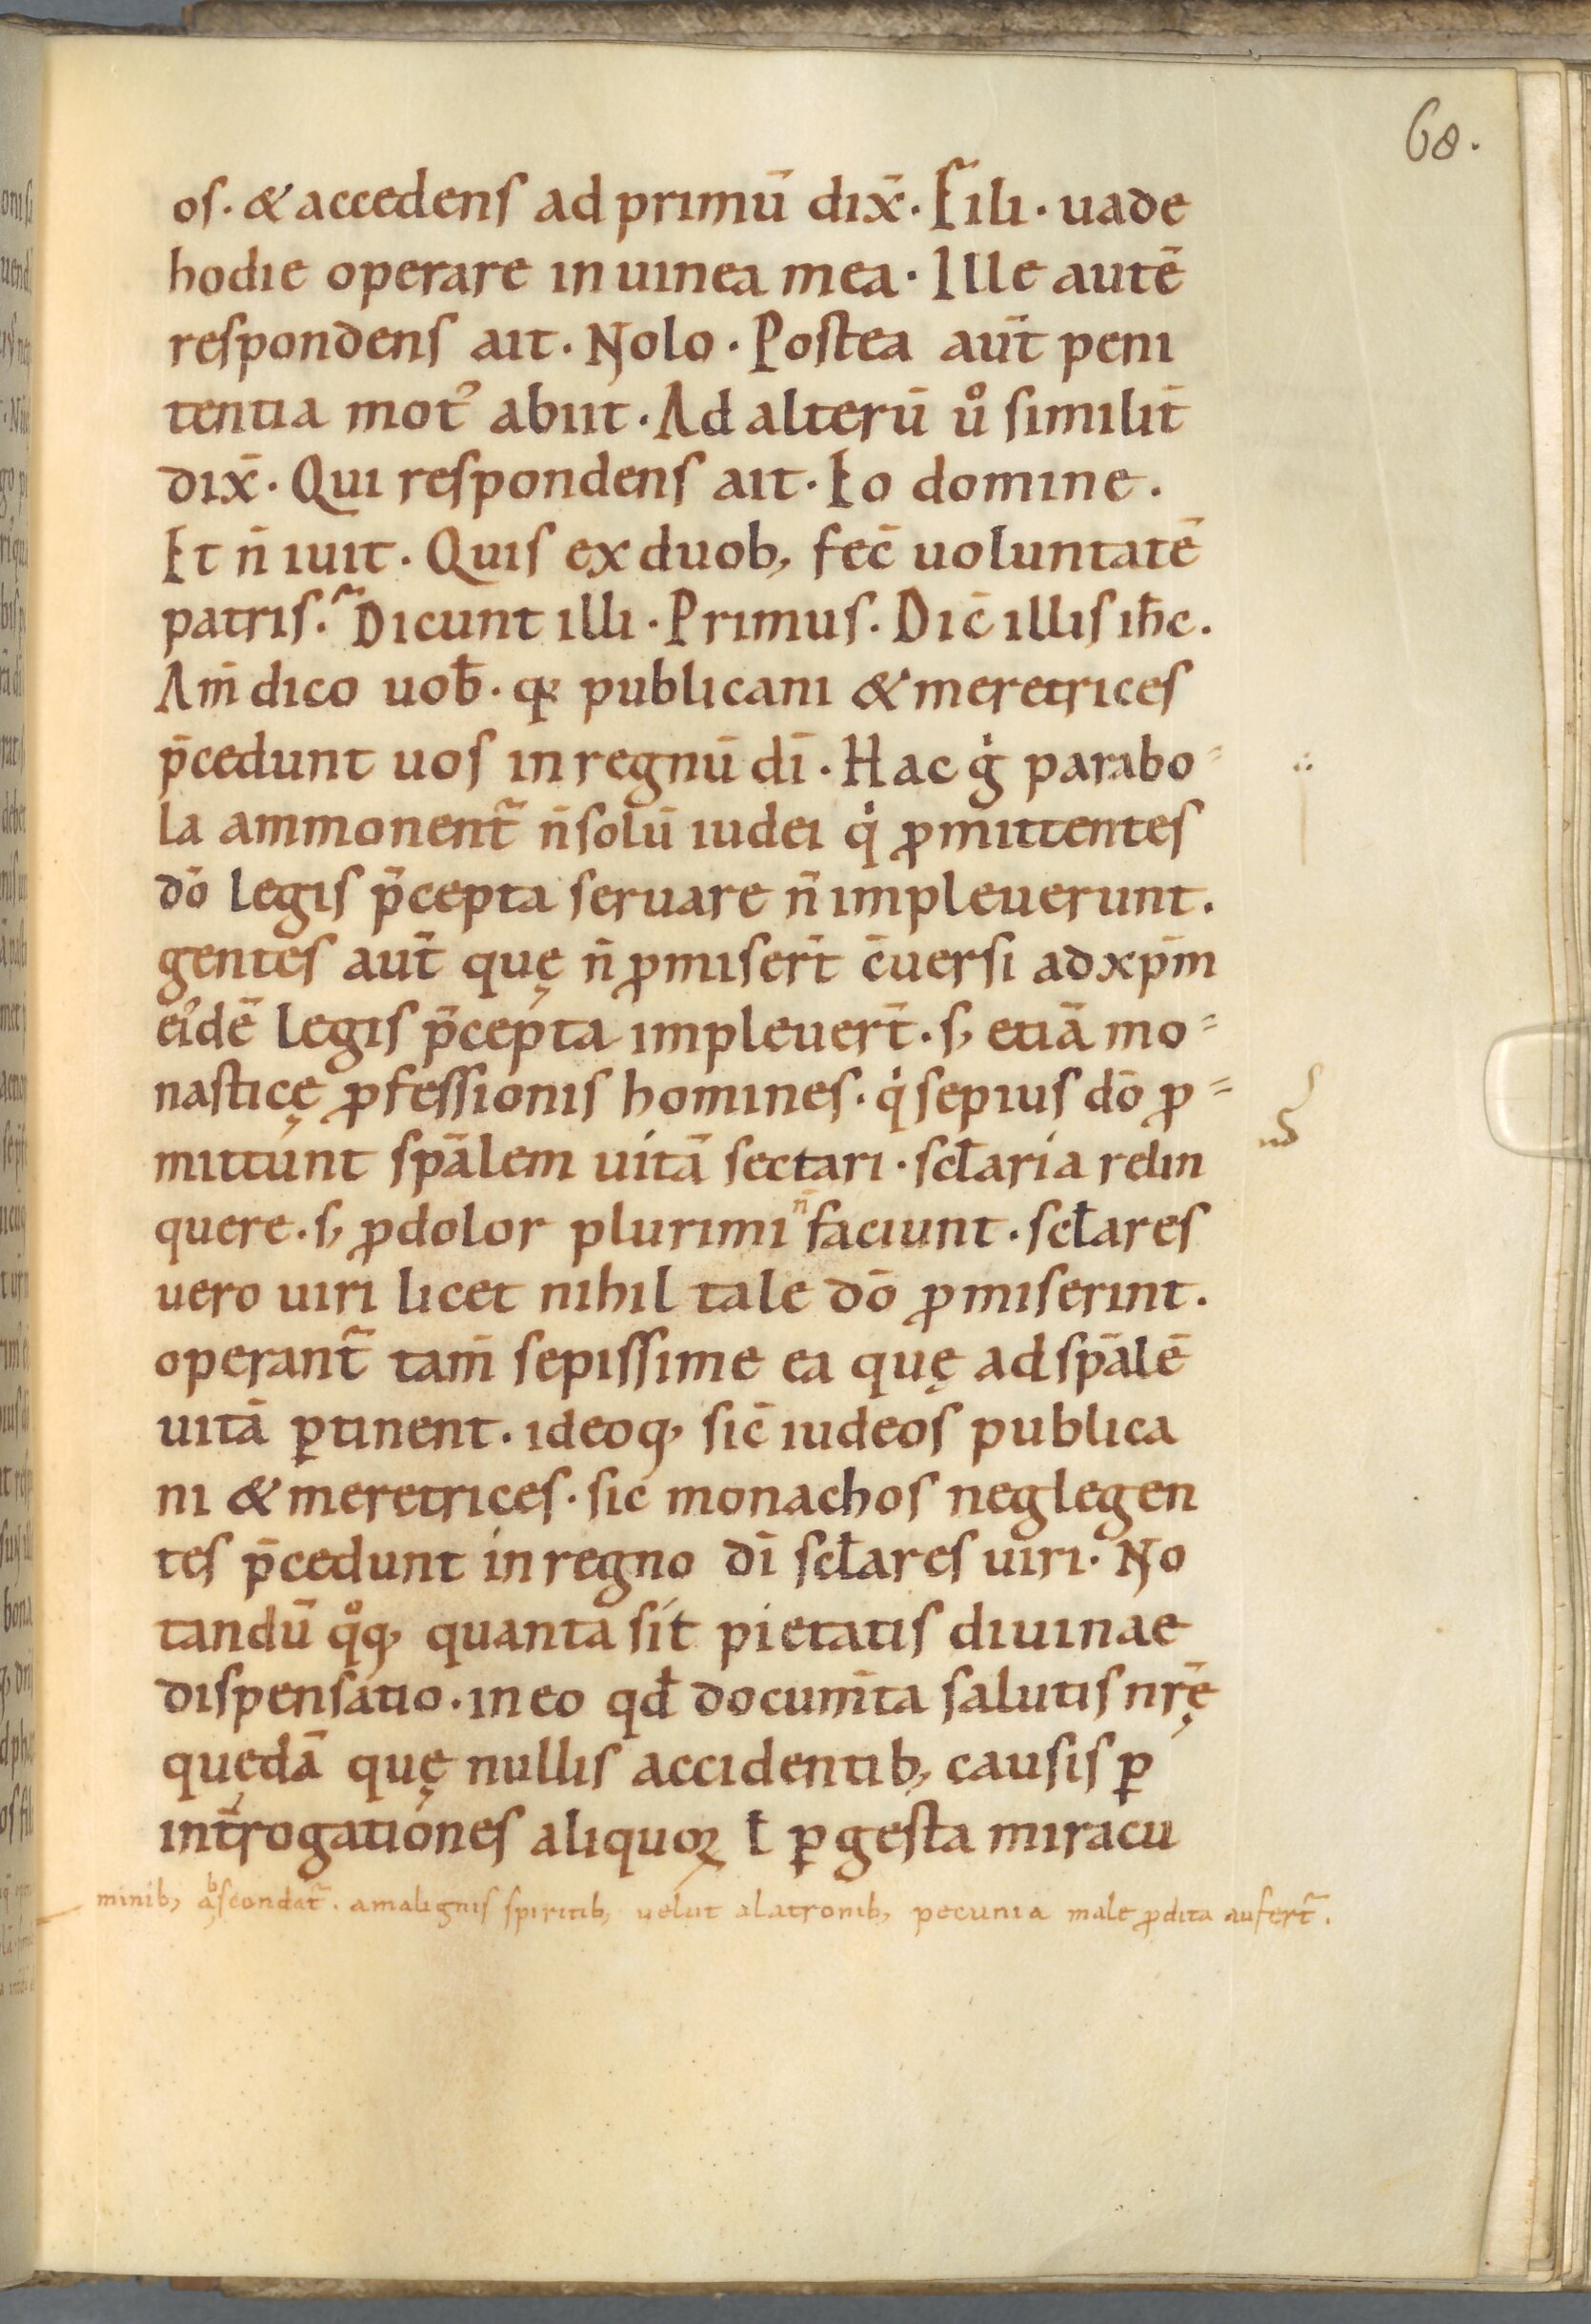 68.
os. & accedens ad primū dix̄. Fili. uade
hodie operare in uinea mea. Ille autē
respondens ait. Nolo. Postea aut̄ peni
tentia mot᾽ abiit. Ad alterū uͦ similit̄
dix̄. Qui respondens ait. Eo domine.
Et n̄ iuit. Quis ex duob; fec̄ uoluntatē
patris. Dicunt illi. Primus. Dic̄ illis ih̄c.
Am̄ dico uob̄. qꝛ publicani & meretrices
p̄cedunt uos in regnū dī. Hac gͥ parabo=
la ammonent̄ n̄ solū iudei qͥ ꝓmittentes
dō legis p̄cepta seruare n̄ impleuerunt.
gentes aut̄ quę n̄ ꝓmisert̄ c̄uersi ad xp̄m
ei᾽dē legis p̄cepta impleuert̄. s; etiā mo=
nasticę ꝓfessionis homines. qͥ sepius dō ꝓ=
mittunt sp̄alem uitā sectari. scłaria relin
quere. s; ꝓdolor plurimi n̄ faciunt. scłares
uero uiri licet nihil tale dō ꝓmiserint.
operant̄ tam̄ sepissime ea quę ad sp̄alē
uitā ꝑtinent. ideoq; sic̄ iudeos publica
ni & meretrices. sic monachos neglegen
tes p̄cedunt in regno dī scłares uiri. No
tandū qͦq; quanta sit pietatis diuinae
dispensatio. in eo qd̄ docum̄ta salutis nr̄ę
quędā quę nullis accidentib; causis ꝑ
int̄rogationes aliquoꝝ ł ꝑ gesta miracu
minib; abscondat̄. a malignis spiritib; uelut a latronib; pecunia male ꝓdita aufert̄.